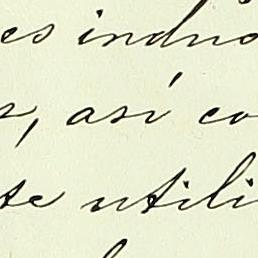 es indus
s, así co
te utili